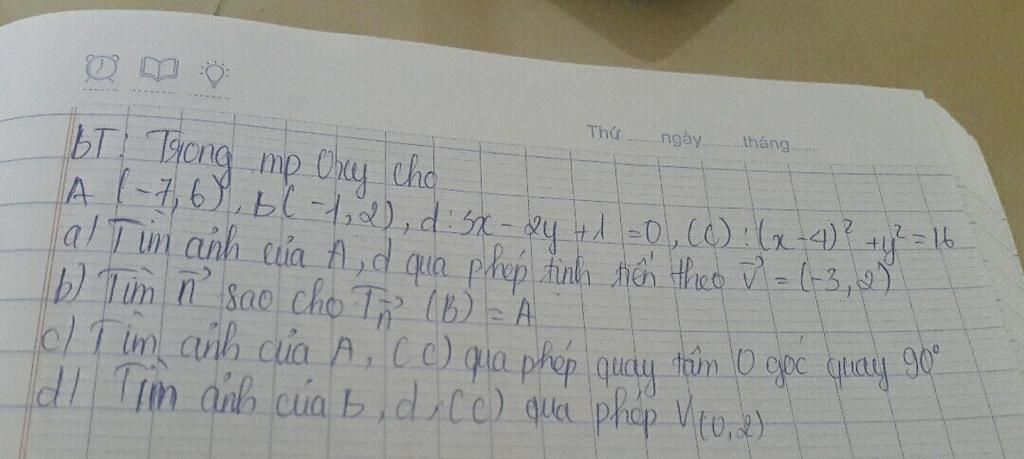 Thứ ...... ngày ...... tháng ......
BT: Trong mp Oxy cho
A (-7,6), b(-1,2), d: 3x - 2y + 1 = 0, (C): (x-4)² + y² = 16
a) Tìm ảnh của A, d qua phép tịnh tiến theo v⃗ = (-3,2)
b) Tìm n⃗ sao cho Tn⃗ (B) = A
c) Tìm ảnh của A, (C) qua phép quay tâm O góc quay 90°
d) Tìm ảnh của b, d, (C) qua phép V(O,2)